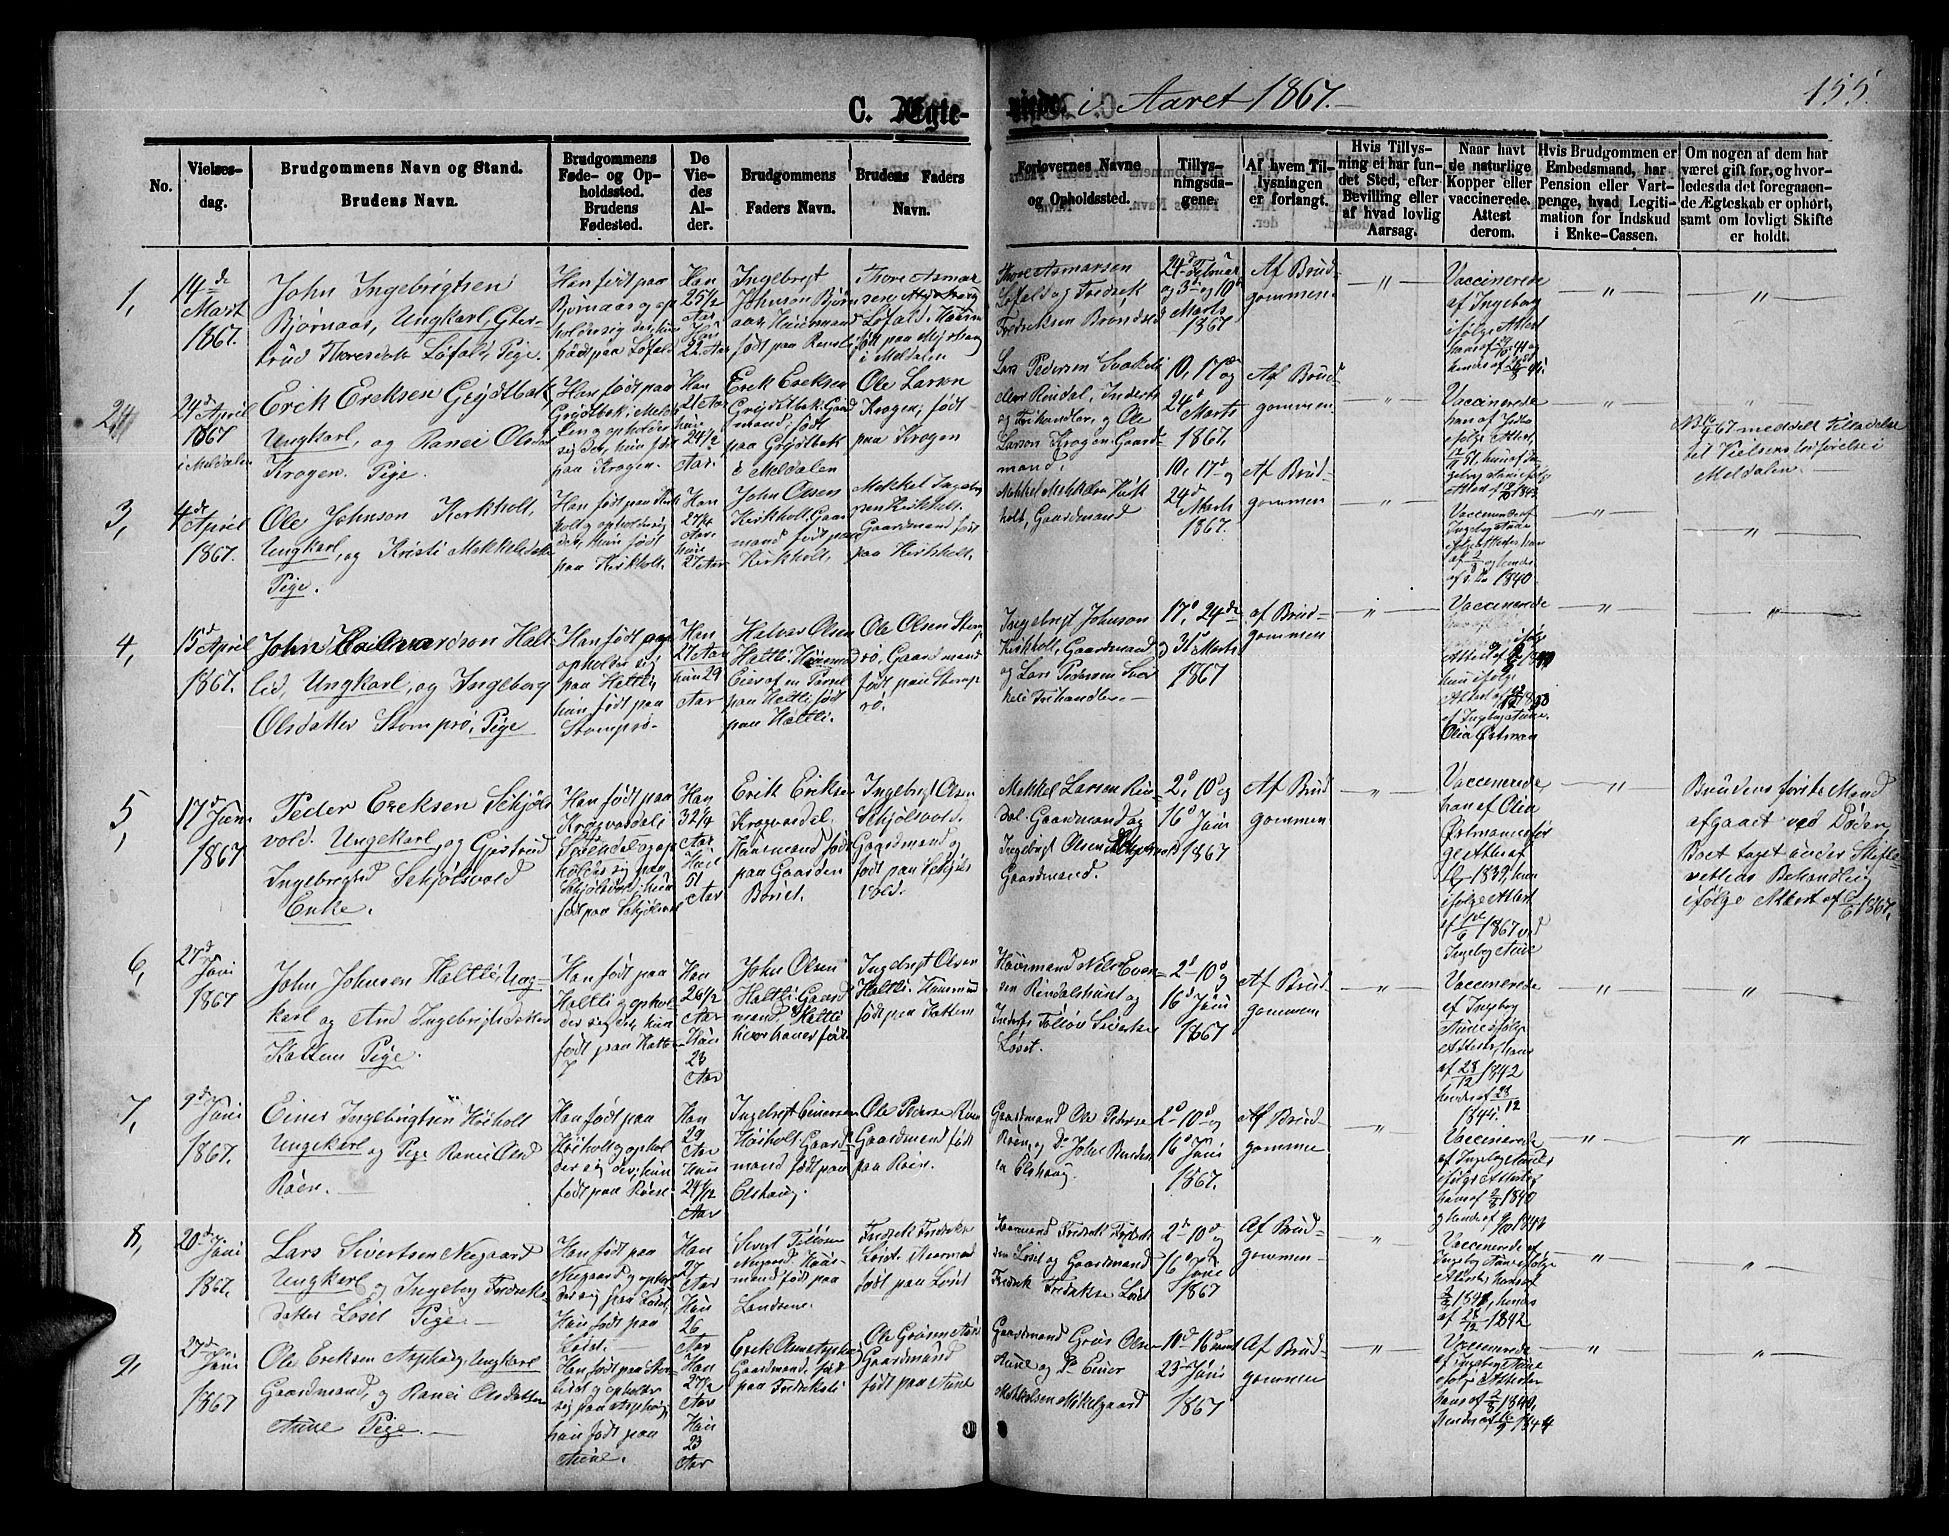 C. Ægte-
viede i Aaret 1867.
155.
No.
Vielses-
dag.
Brudgommens Navn og Stand.
Brudens Navn.
Brudgommens
Føde- og Op-
holdssted.
Brudens
Fødested.
De
Vie-
des
Al-
der.
Brudgommens
Faders Navn.
Brudens Faders
Navn.
Forlovernes Navne
og Opholdssted.
Tillys-
ningsda-
gene.
Af hvem Til-
lysningen
er forlangt.
Hvis Tillys-
ning ei har fun-
det Sted, efter
Bevilling eller
af hvad lovlig
Aarsag.
Naar havt
de naturlige
Kopper eller
vaccinerede.
Attest
derom.
Hvis Brudgommen er
Embedsmand, har
Pension eller Vart-
penge, hvad Legiti-
mation for Indskud
i Enke-Cassen.
Om nogen af dem har
været gift før, og hvor-
ledes da det foregaaen-
de Ægteskab er ophørt,
samt om lovligt Skifte
er holdt.
1,
14de
Mart
1867.
John Ingebrigtsen
Bjørnaas, Ungkarl, Gjer-
trud Thoresdatr Løfald, Pige.
Han født paa
Bjørnaas og op-
holder sig der, hun
født paa Løfald
Han
25 1/2
Aar
Hun
22 Aar
Ingebrigt
Johnson Bjørn
aas, Huusmand
født paa
Thore Asmar
sen
Løfald, Huusm
født paa
i Meldalen
Thore Asmarsen
Løfald og Fredrik
Fredriksen
24de Februar
og 3de og 10de
Marts
1867
Af Brud-
gommen
"
Vaccinerede
af Ingeborg
ifølge Attest
hans af
hendes af
"
"
2
24de
April
1867
i Meldalen
Erik Eriksen Grydtbak,
Ungkarl, og Ranei Olsdatr
Krogen. Pige.
Han født paa
Grydtbak i Mel
dalen og opholder
sig der, hun født
paa Krogen.
Han
21 Aar
hun
24 1/2
Aar.
Erik Eriksen
Grydtbak. Gaard
mand, født
paa Grydtbak
i Meldalen
Ole Larson
Krogen, født
paa Krogen
Lars Pedersen
Rindal, Inderst
og Frihandler, og Ole
Larson Krogen, Gaard-
mand.
10, 17de og
24de
Marts
1867.
Af Brud-
gommen
"
Vaccinerede
"
meddelt Tilladelse
til Vielsens Udførelse i
Meldalen.
3,
4de
April
1867.
Ole Johnson Kirkholt,
Ungkarl, og Kristi Mekkelsdatr
Pige.
Han født paa Kirk
holt og opholder sig
der, hun født
paa Kirkholt.
Han
27 1/4
Aar
hun
27 Aar
John Olsen
Kirkholt. Gaar
mand født paa
Kirkholt.
Mekkel Ingebrig
sen Kirkholt.
Gaardmand født
paa Kirkholt
Mekkel Mekkelsen Kirk
holt, Gaardmand
10, 17de og
24de
Marts
1867.
Af Brud-
gommen
"
Vaccinerede af
Ingeborg Aune
ifølge Attester, hans
af 2/8 og hendes
1840
"
"
4,
15de April
1867.
John Halvardson Halt-
lid, Ungkarl, og Ingeborg
Olsdatter Stomprø, Pige
Han født og
opholder sig
paa Haltli,
hun født paa
Stomprø.
Han
27 Aar
hun 29
Aar
Halvar Olsen
Haltli, Huusmand
Eier af en Parcel
paa Haltli født
paa Haltli.
Ole Olsen Stomp
rø, Gaardmand
født paa Stomp
rø.
Ingebrigt Johnson
Kirkholt, Gaardmand
og Lars Pedersen
Frihandler.
17de, 24de
og 31te Marts
1867
af Brud-
gommen
"
Vaccinerede
ifølge
Attest af
hun ifølge
Attest af
af Ingeborg Aune.
Olia Østman
"
"
5,
17de Juni
1867
Peder Eriksen Sekjøls
vold. Ungekarl, og Gjertrud
Ingebrigtsd Sekjølsvold
Enke.
Han født paa
og op
holder sig paa
Sekjølsvold, hun
født paa Sekjølsvold
Han
32 1/4
Aar
Hun
51
Aar
Erik Eriksen
Huusmand født
paa Gaarden
Boriet.
Ingebrigt Olsen
Sekjølsvold.
Gaardmand
født paa Sekjøls
vold.
Mekkel Larsen Rin-
dal. Gaardmand og
Ingebrigt Olsen
Gaardmand.
2de, 10de og
16de Juni
1867
Af Brud
gommen.
"
Vaccinerede,
han af Olia
Østman iføl
ge Attest af
1839, hun
ifølge Attest
af 1867 ved
Ingeborg Aune
"
Brudens første Mand
afgaaet ved Døden,
Boet taget under Skifte-
rettens Behandling
ifølge Attest af 1867.
6,
27de
Juni
1867
John Johnsen Haltli, Ung-
karl og Ane Ingebrigtsdatter
Kattem Pige.
Han født paa
Haltli og ophol-
der sig der, hun
født paa Kattem
Han
26 1/2
Aar
Hun
23
Aar
John Olsen
Haltli. Gaard
mand, Haltli
hvor han er født
Ingebrigt Olsen
Haltli. Huusmand
født paa Kattem
Huusmand Nils Even-
sen Rindalshuset og
Inderst Tolløv Sivertsen
Løset.
2de 10de og
16de Juni
1867
Af Brud-
gommen
"
Vaccinerede
af Ingeborg
Aune ifølge
Attester, hans
af 23/12 1842
hendes af 23/12
1844.
"
"
7,
9de
Juni
1867.
Einer Ingebrigtsen Høiholt
Ungekarl og Pige Ranei Olsd
Røen.
Han født paa
Høiholt og ophol
der sig der, hun
født paa Røen
Han
29
Aar
Hun
24 1/2
Aar
Ingebrigt Einersen
Høiholt. Gaard
mand født paa
Elshaug.
Ole Pederse Røen
Gaardmand født
paa Røen.
Gaardmand Ole Pederse
Røen, og Do John
Elshaug.
2de 10de og
16de Juni
1867.
Af Brud
gommen
"
Vaccinerede
af Ingeborg Aune
ifølge Attester
hans af 1840
og hendes af
"
"
8,
20de
Juni
1867.
Lars Sivertsen Nergaard
Ungkarl og Ingeborg Fredriks-
datter Løset Pige.
Han født paa
Nergaard og ophol
der sig paa Løset,
Hun født paa
Løset.
Han
27
Aar
Hun
26
Aar
Sivert Tolløvsen
Nergaard Huus-
mand født paa
Landsem.
Fredrik Fredriksen
Løset. Huusmand
født paa Løset
Huusmand Fredrik Fredrik
sen Løset og Gaardmand
Fredrik Fredriksen Løset
2de 10de
16de og
Juni
1867
Af Brud-
gommen
"
Vaccinerede af
Ingeborg Aune ifølge
Attester, hans af
hendes
af 1842
"
"
9,
27de
Juni
1867
Ole Eriksen Asphøug, Ungkarl
Gaardmand, og Ranei Olsdatter
Aune Pige.
Han født paa
og opholder
sig paa Asphøug,
hun født paa
Aune.
Han
27 1/2
Aar
Hun
23
Aar
Erik
Gaardmand. født
paa Fredriksli
Ole Grøsen Aune
Gaardmand
født paa Aune
Gaardmand Grøs Olsen
Aune og Do Einer
Mekkelsen Mikelgaard
10de 16de samt
23de Juni
1867
Af Brud-
gommen
"
Vaccinerede
af Ingeborg Aune
ifølge Attester
hans af 1840,
hendes af 1844
"
"